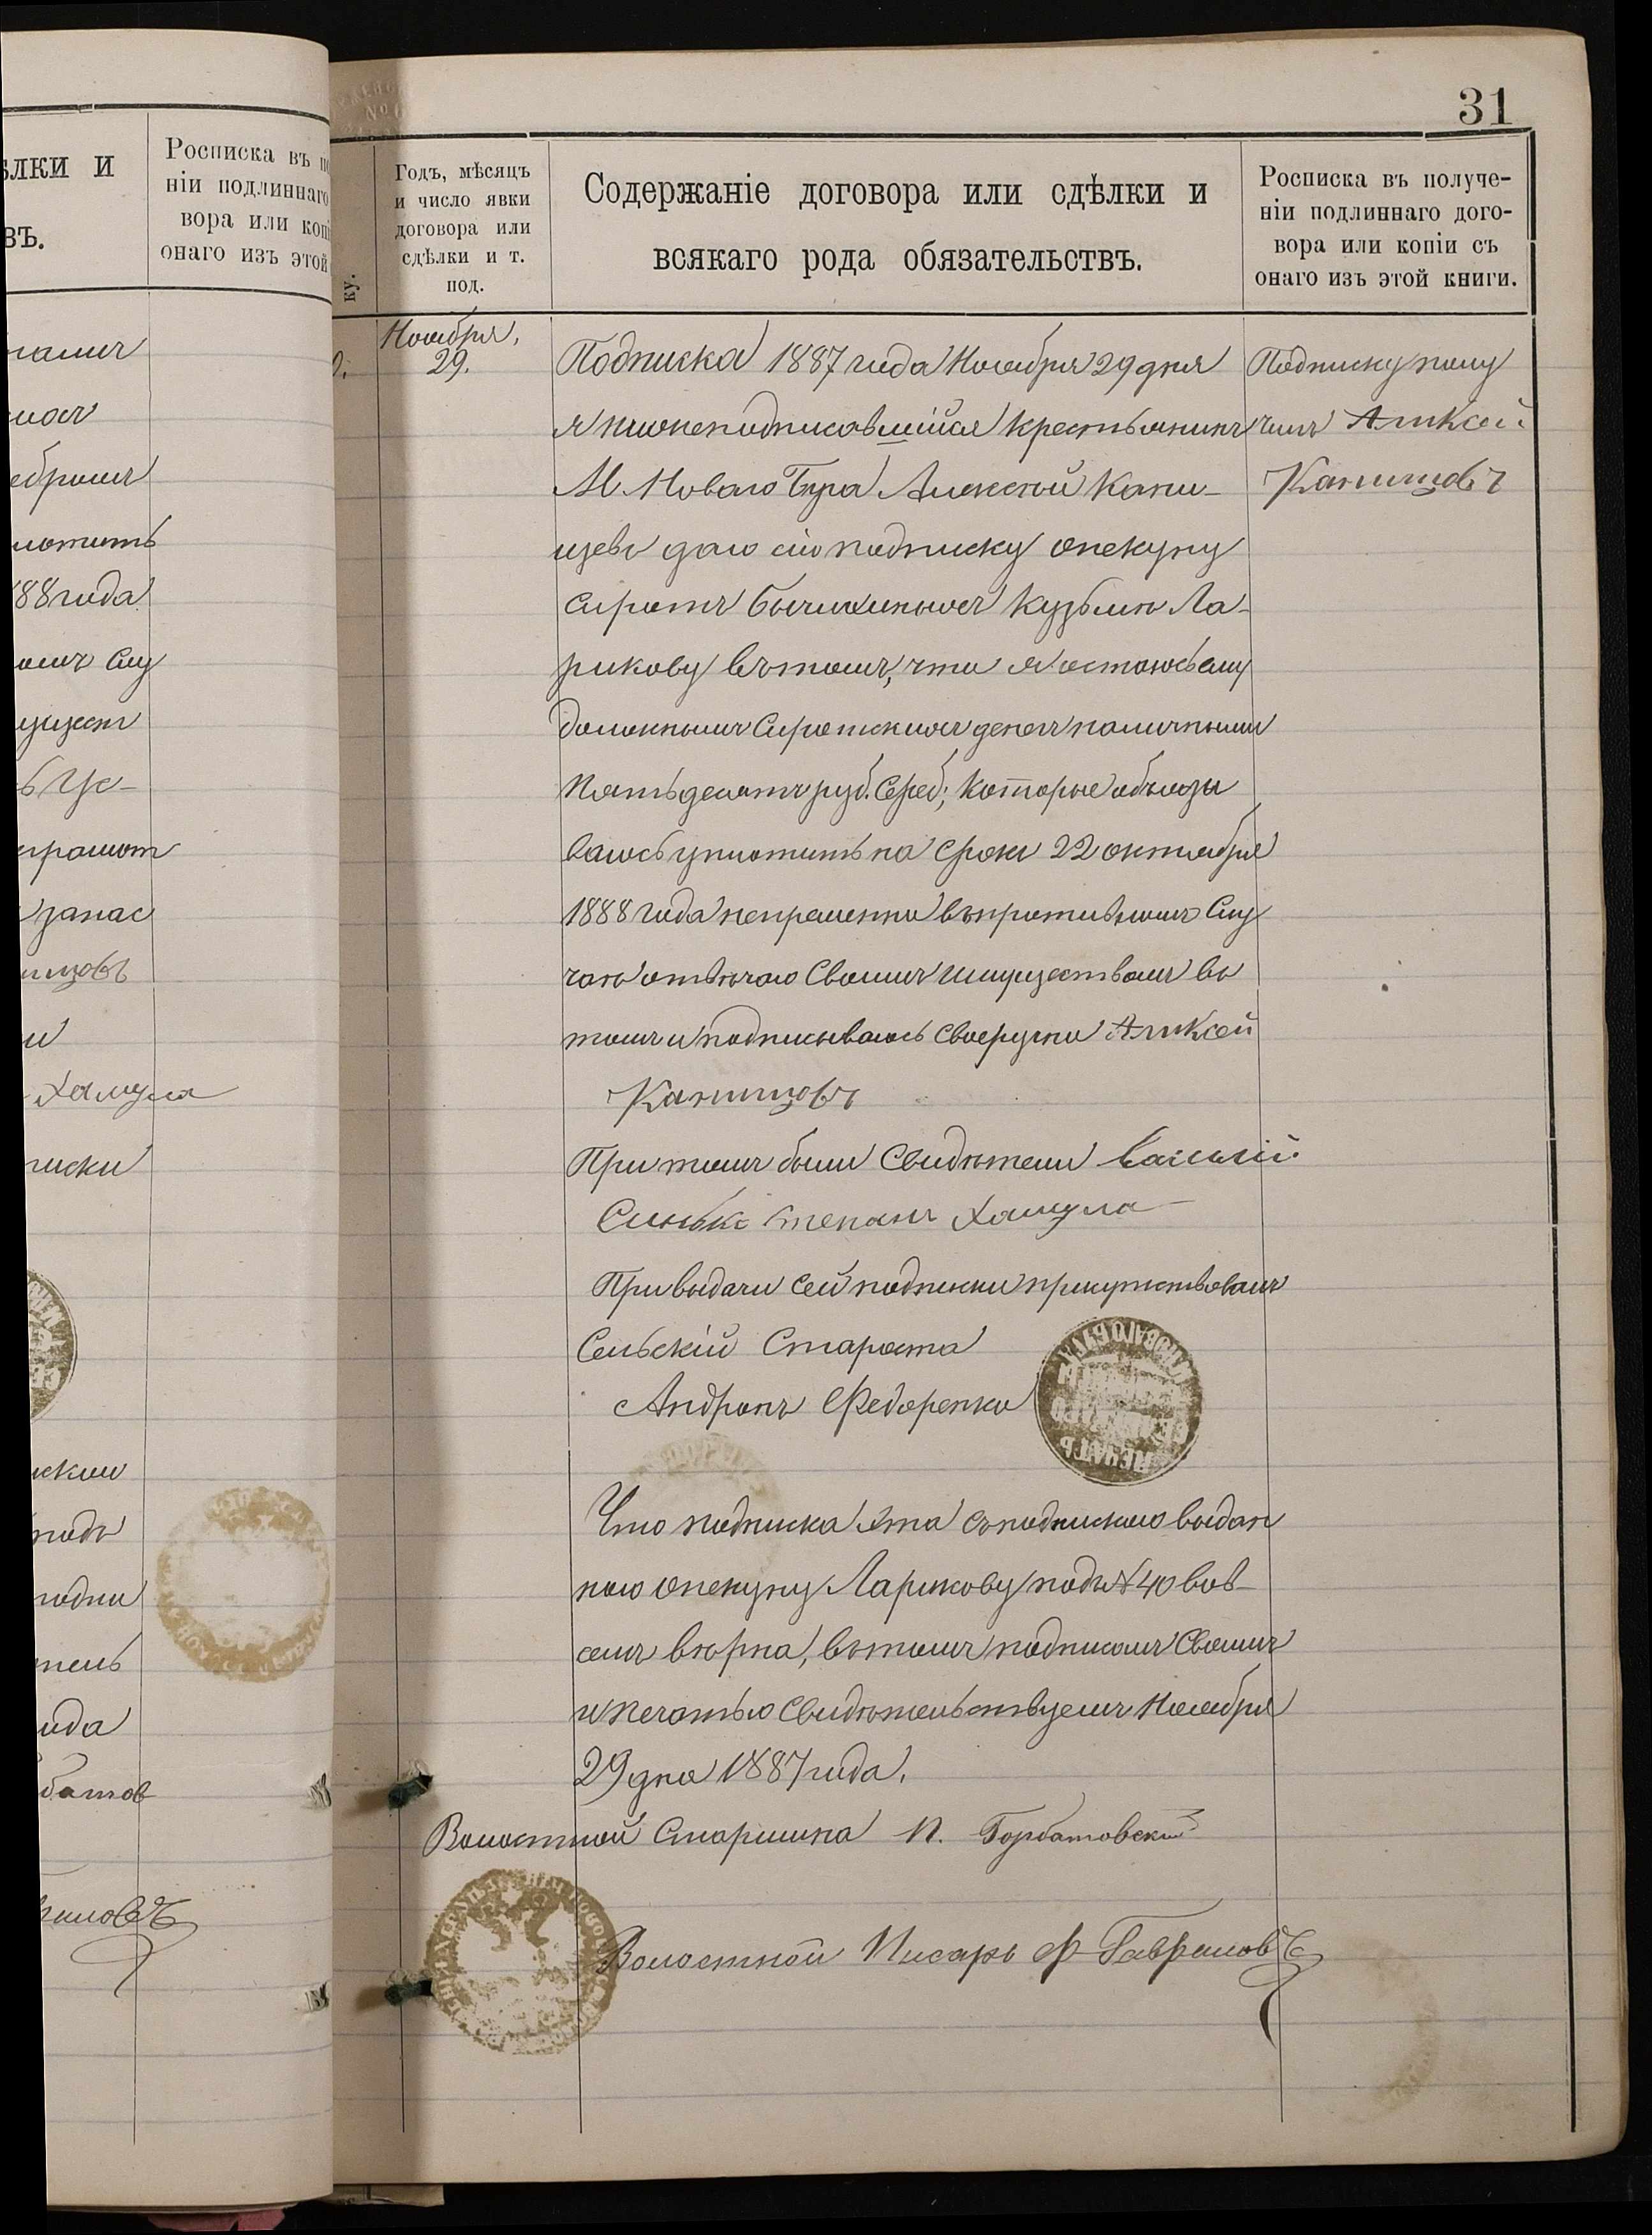 31
ѣлки и
въ.
Росписка въ по
ніи подлиннаго
вора или копі
онаго изъ этой
ку.
Годъ, мѣсяцъ
и число явки
договора или
сдѣлки и т.
под.
Содержаніе договора или сдѣлки и
всякаго рода обязательствъ.
Росписка въ получе-
ніи подлиннаго дого-
вора или копіи съ
онаго изъ этой книги.
Ноября,
29.
Подписка 1887 года Ноября 29 дня
я нижеподписавшійся крестьянинъ
М. Новаго Буга Алексѣй Капи-
цевъ даю сію подписку опекуну
сиротъ Кузьмѣ Ла-
рикову въ томъ, что я остаюсь ему
должнымъ Сиротскихъ денегъ наличными
Пятьдесятъ руб. Сереб; которые обязы
ваюсь уплотить на срокъ 22 октября
1888 года непременно въ противномъ Слу
чаѣ отвѣчаю Своимъ имуществомъ въ
томъ и подписываюсь своеручно Аликсей
Капицовъ
При томъ были Свидѣтели Василій
Степанъ Хамула
При выдачи сей подписки присутствовалъ
Сельскій Староста
Андронъ Федоренко
Что подписка эта съ подпискою выдан
ною опекуну Ларикову подъ № 40 во в-
семъ вѣрна, въ томъ подписомъ Своимъ
и печатью Свидѣтельствуемъ Ноября
29 дня 1887 года.
Волостной Старшина П. Горбатовскій
Волостной Писарь Ф Гавриловъ
Подписку полу
чилъ Аликсей
Капицовъ
88 года
запас
Хамула